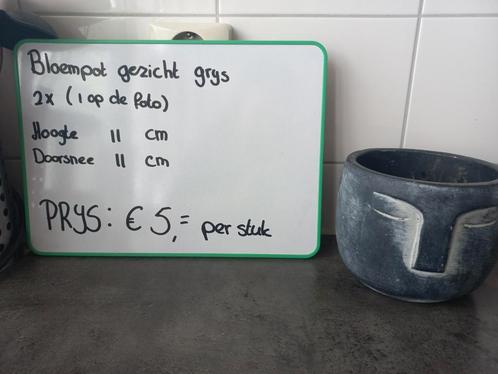 Bloempot gezicht grys
2x (1 op de foto)
Hoogte 11 cm
Doorsnee 11 cm
PRYS: € 5,= per stuk